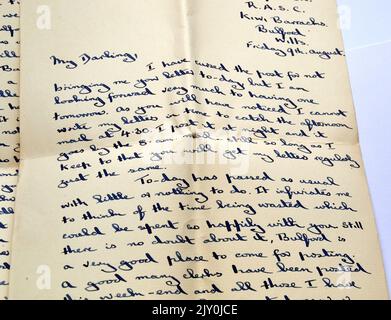 R.A.S.C.
Kiwi Barracks.
Bulford.
Wilts.
Friday 9th. August
My Darling,
I have cursed the post for not
bringing me your letter to-day but I am
looking forward very much to having one
tomorrow. As you will have noticed I cannot
write my letters in time to catch the afternoon
mail at 4.30. I post it at night and it
goes by the 5-am so long as I
keep to that you will get my letters regularly
just the same.
To-day has passed as usual
with little or nothing to do. It infuriates me
to think of the time being wasted which
could be spent so happily with you. Still
there is no doubt about it, Bulford is
a very good place to come for posting.
a good many clerks have been posted
this week-end and all those I have
alamy
Image ID: 2JY0JCE
www.alamy.com